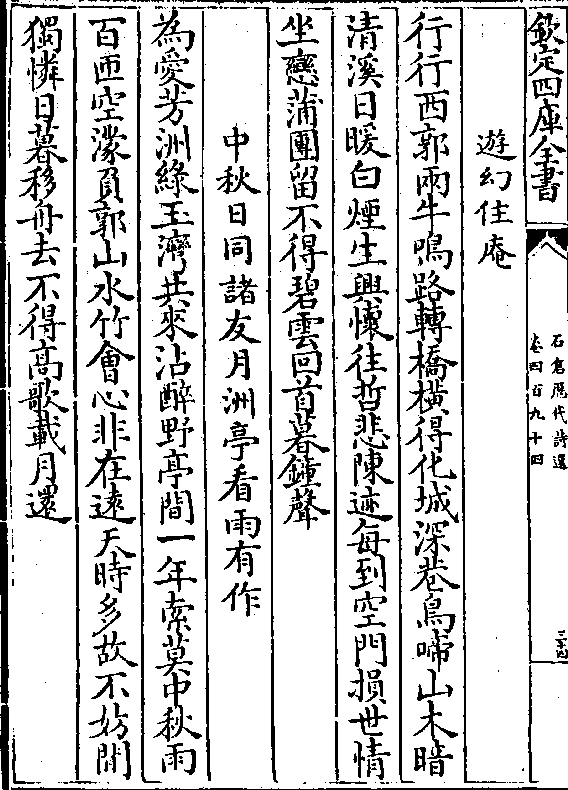 欽定四庫全書
石倉歷代詩選
卷四百九十四
三十四
遊幻住庵
行行西郭兩牛鳴路轉橋横得化城深巷鳥啼山木暗
清溪日暖白煙生興懷往哲悲陳迹每到空門損世情
坐戀蒲團留不得碧雲回首暮鐘聲
中秋日同諸友月洲亭看雨有作
為愛芳洲綠玉灣共來沾醉野亭間一年索莫中秋雨
百匝空濛負郭山水竹會心非在遠天時多故不妨閒
獨憐日暮移舟去不得高歌載月還